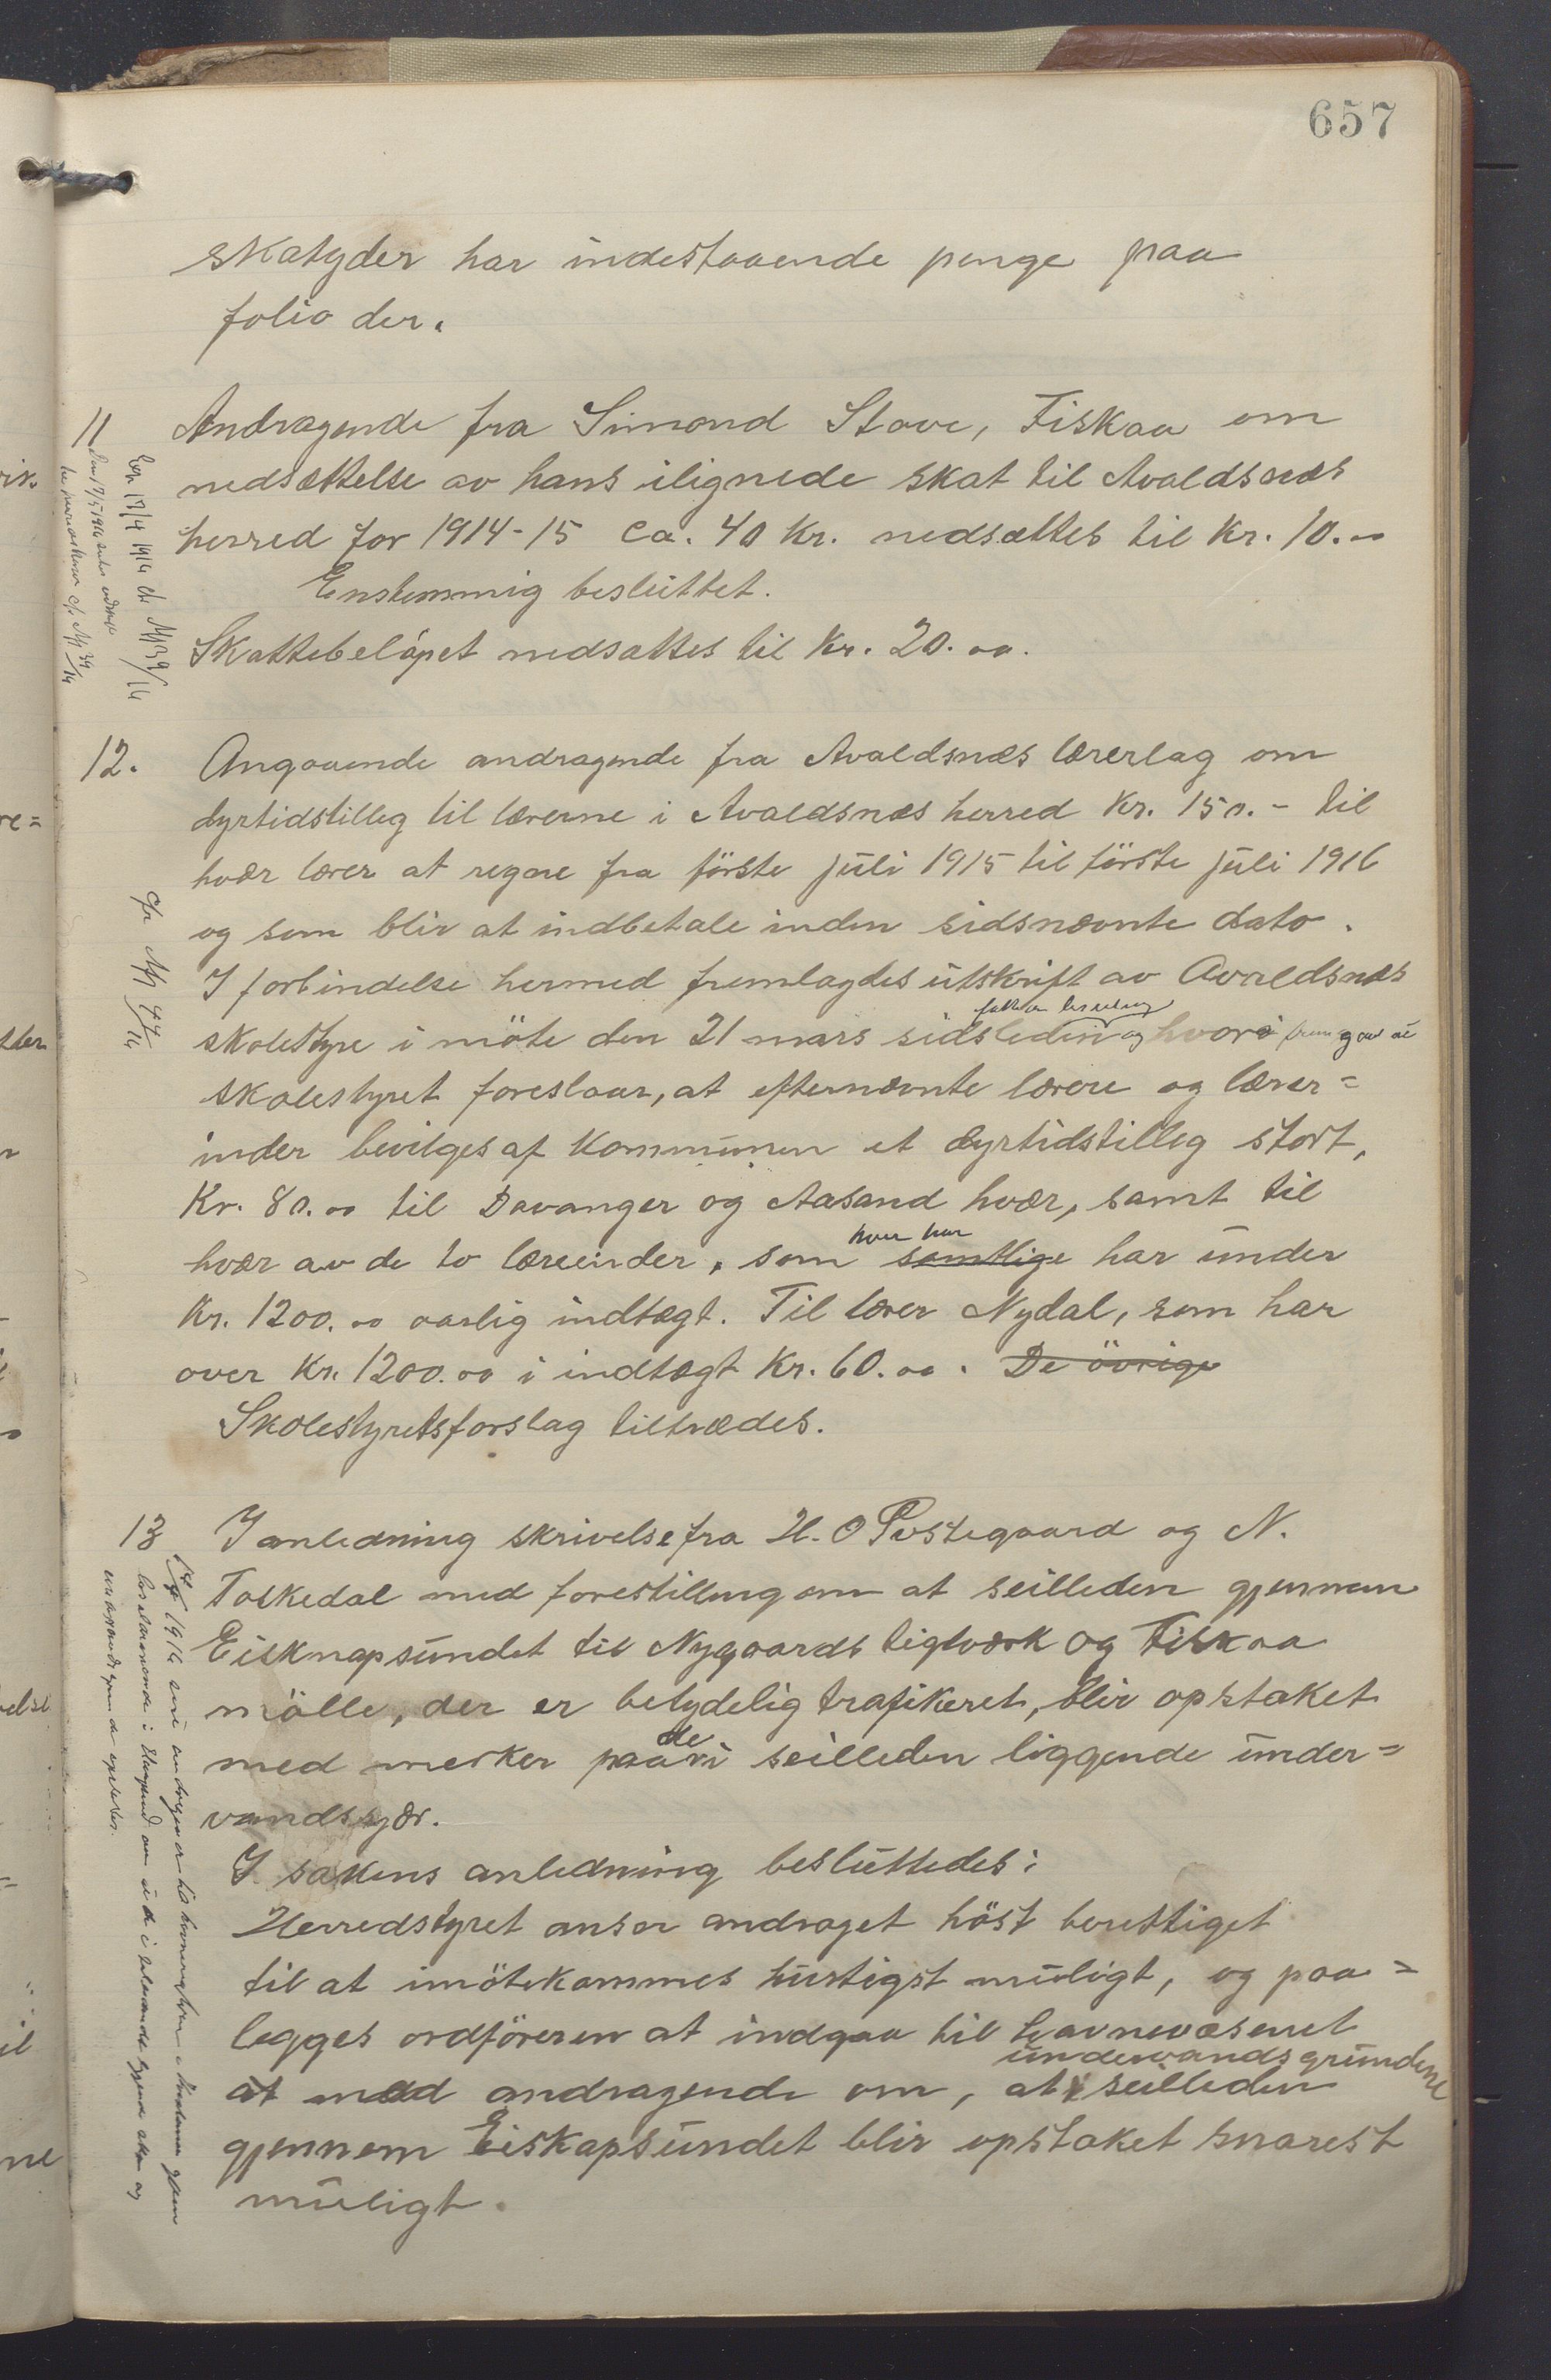 657
skatyder har indestaaende penge paa
folio der.
11 Andragende fra Simond Stave, Fiskaa om
nedsættelse av hans ilignede skat til Avaldsnæs
herred for 1914-15 ca. 40 kr. nedsættes til kr. 10.00
Enstemmig besluttet.
Skattebeløpet nedsættes til kr. 20.00.
12. Angaaende andragende fra Avaldsnæs lærerlag om
dyrtidstilleg til lærerne i Avaldsnæs herred kr. 150.- til
hvær lærer at regne fra förste juli 1915 til förste juli 1916
og som blir at indbetale inden sidsnævnte dato.
cfr
I forbindelse hermed fremlagdes utskrift av Avaldsnæs
skolestyre i möte den 21 mars sidsleden og hvori
skolestyret foreslaar, at efternævnte lærere og lærer=
inder bevilges af kommunen et dyrtidstilleg stort,
Kr. 80.00 til Davanger og Aasand hvær, samt til
hvær av de to lærerinder, som samtlige har under
Kr. 1200.00 aarlig indtægt. Til lærer Nydal, som har
over kr. 1200.00 i indtægt kr. 60.00. De övrige
Skolestyretsforslag tiltrædes.
13 I anledning skrivelse fra H. O Postegaard og N.
Toskedal med forestilling om at seilleden gjennem
Eisknapsundet til Nygaards tiglværk og Fiskaa
mölle, der er betydelig trafikeret, blir opstaket
med merker paa de i seilleden liggende under=
vandsskjær.
I sakens anledning besluttedes:
Herredstyret anser andraget höst berettiget
til at imötekommes hurtigst muligt, og paa=
legges ordföreren at indgaa til havnevæsenet
undervandsgrundene
at med andragende om, at i seilleden
gjennem Eiskapsundet blir opstaket snarest
muligt.